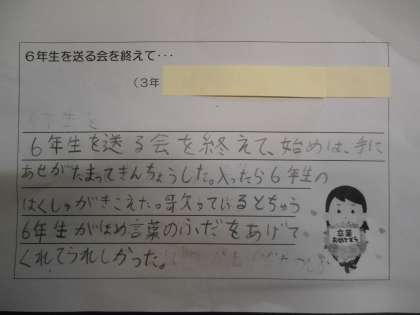 6年生を送る会を終えて・・・
(3年
6年生を送る会を終えて、始めは、手に
あせがたまってきんちょうした。入ったら6年生の
はくしゅがきこえた。歌っているとちゅう
6年生がはめ言葉のふだをあげて
くれてうれしかった。
卒業
おめでとう